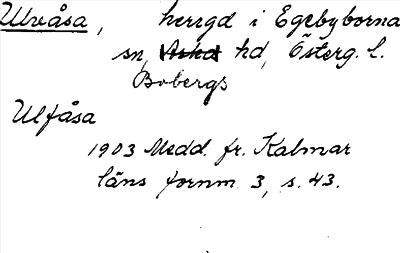 Ulvåsa, herrgd i Egebyborna
sn, hd, Österg. l.
Bobergs
Ulfåsa
1903 Medd. fr. Kalmar
läns fornm. 3, s. 43.